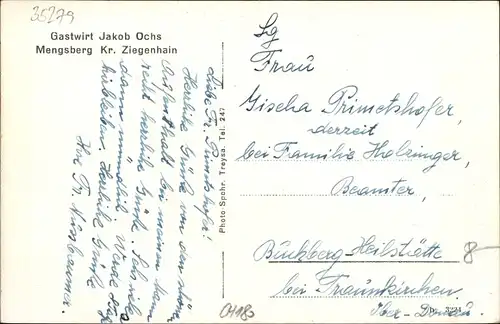 35279
Gastwirt Jakob Ochs
Mengsberg Kr. Ziegenhain
Liebe Fr. Primetshofer!
Herzliche Grüße von den schönen
Aufenthalt bei meinem Mann
recht herzliche Grüße.
dann mündlich. Werde
hierbleiben. Herzliche Grüße
Ihre Fr. Nussbaumer.
Photo Spohr, Treysa, Tel. 247
Frau
Gisela Primetshofer,
derzeit
bei Familie Holzinger,
Beamter,
Bückberg Heilstätte
bei Traunkirchen,
Ober-Donau.
8-